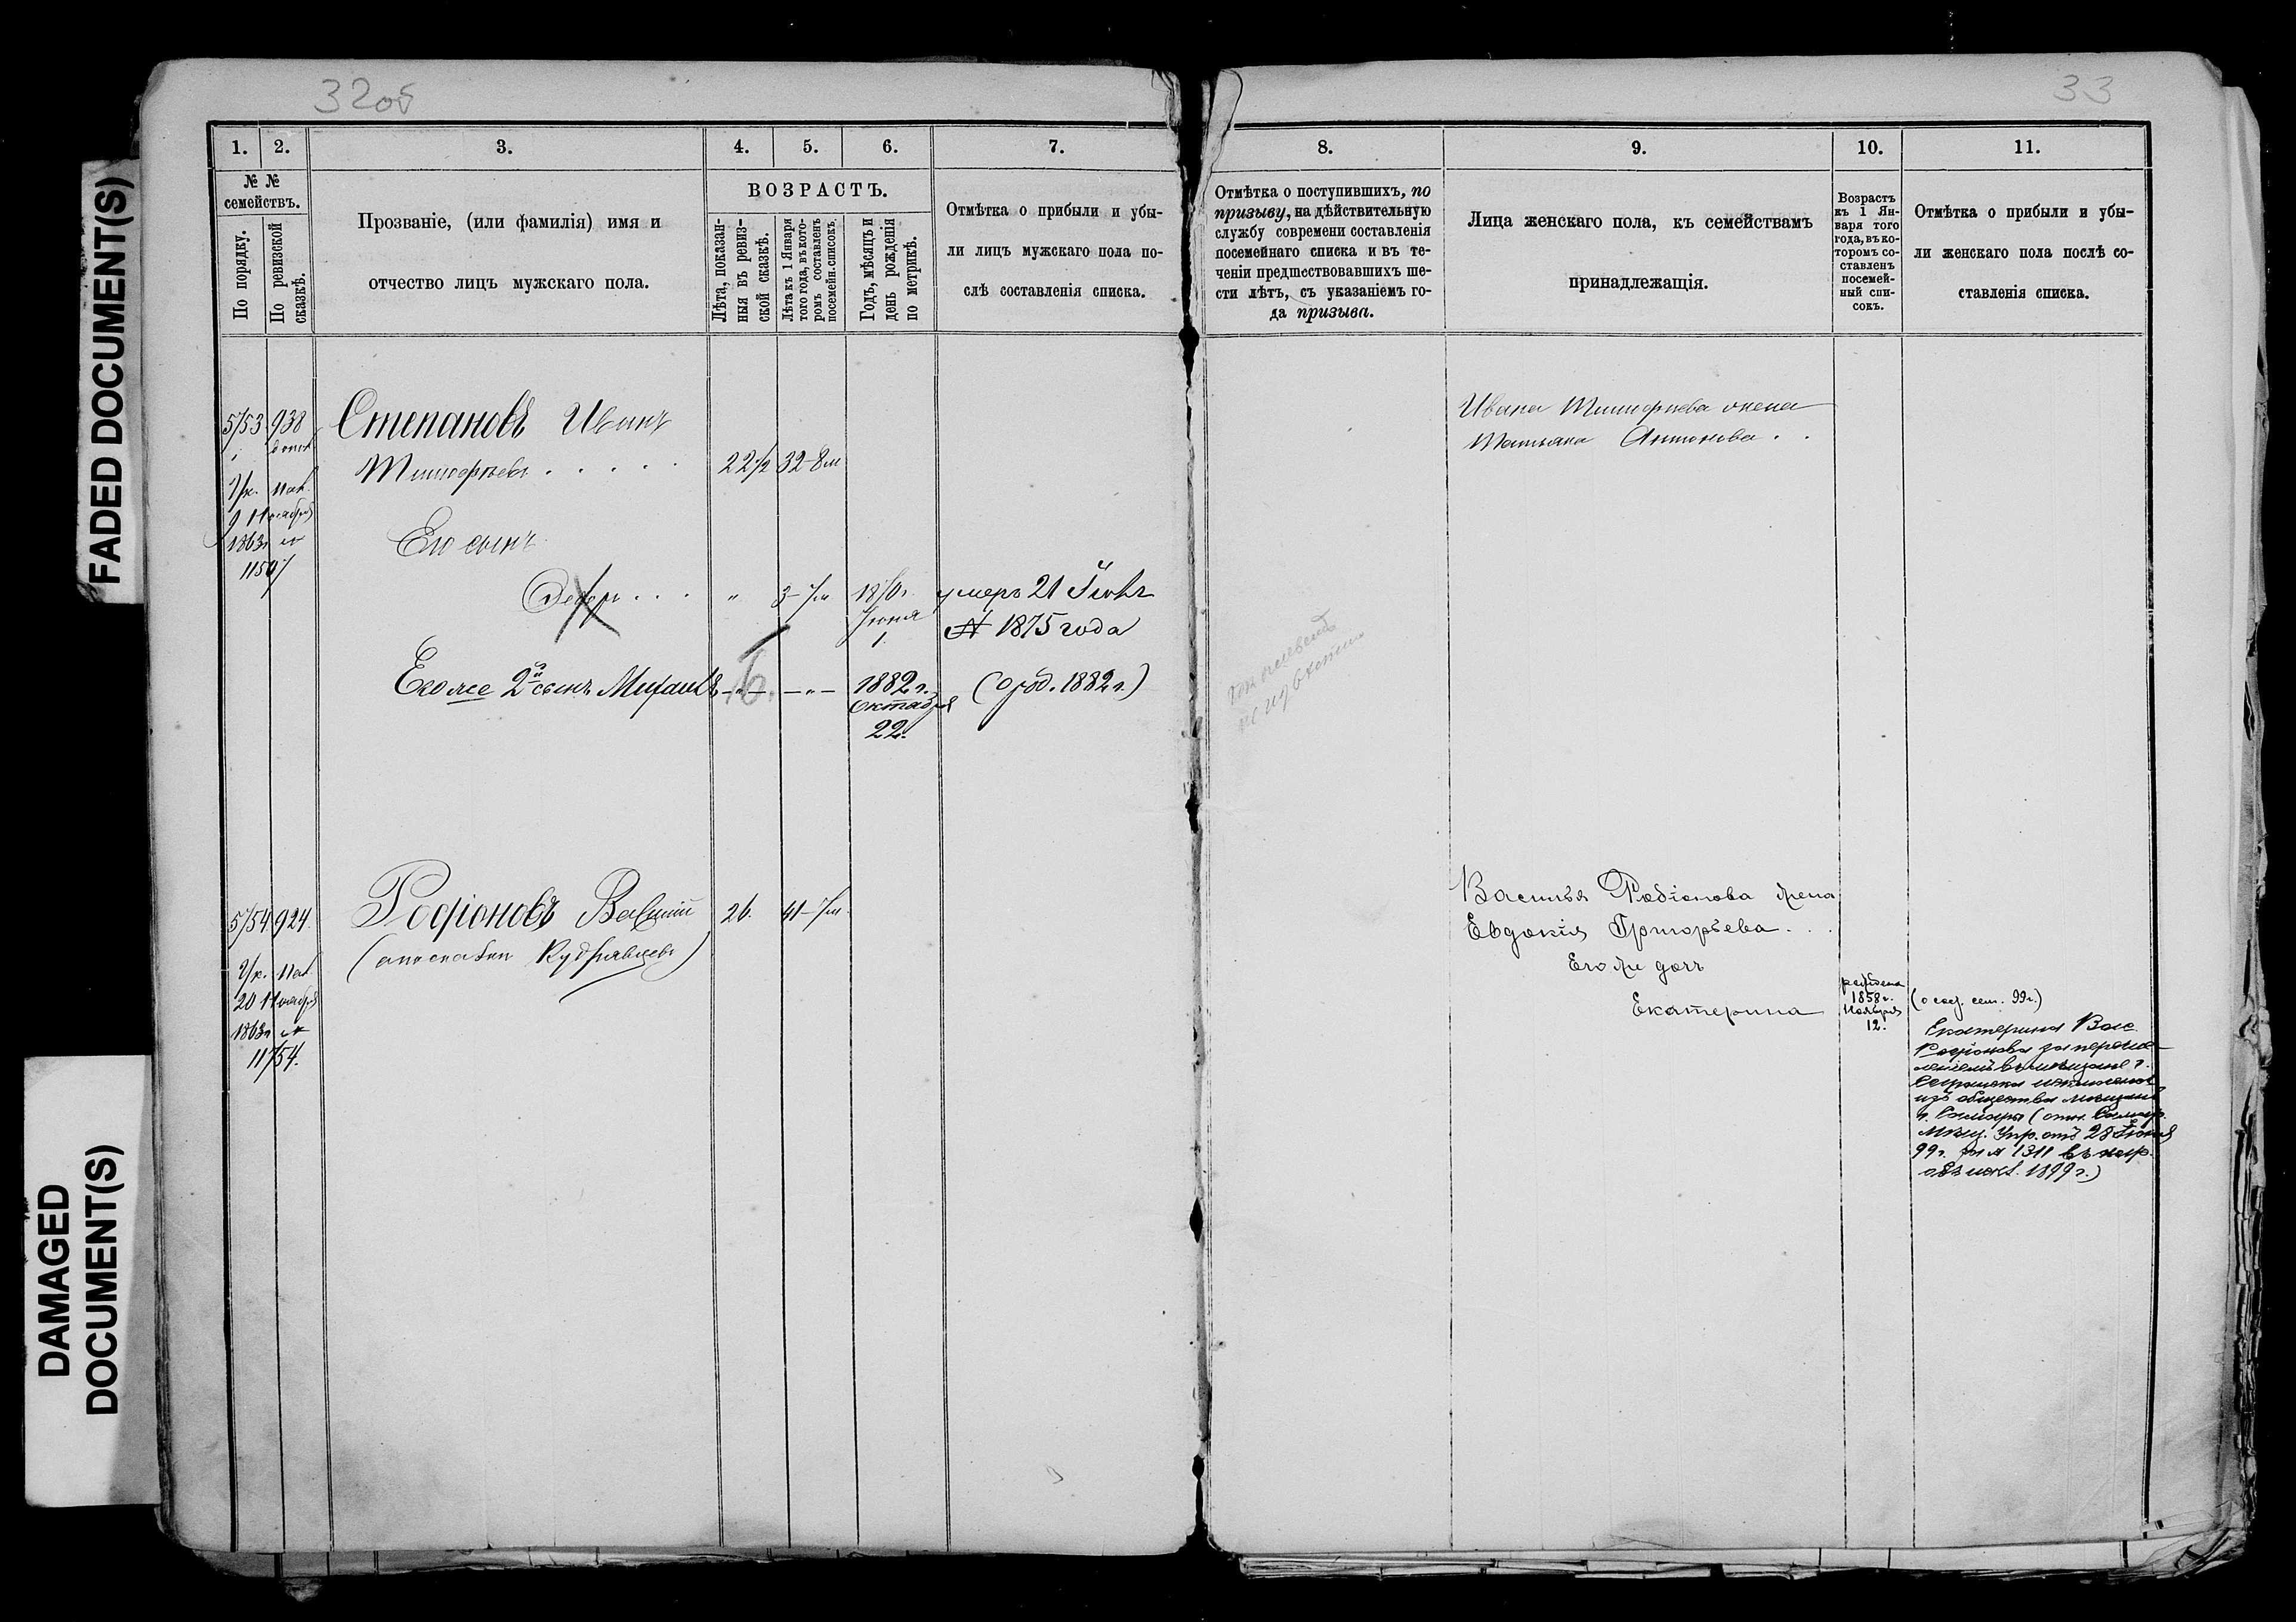 FADED DOCUMENT(S)
DAMAGED
DOCUMENT(S)
32об
1. 2. 3. 4. 5. 6. 7.
№ №
семействъ.
По порядку.
По ревизской
сказкѣ.
Прозваніе, (или фамилія) имя и
отчество лицъ мужскаго пола.
ВОЗРАСТЪ.
Лѣта, показан-
ныя въ ревиз-
ской сказкѣ.
Лѣта къ 1 Января
того года, въ кото-
ромъ составленъ
посемейн. списокъ.
Годъ, мѣсяцъ и
день рожденія
по метрикѣ.
Отмѣтка о прибыли и убы-
ли лицъ мужскаго пола по-
слѣ составленія списка.
5/53 938 Степановъ Иванъ
Тимофѣевъ . . . . . 22 1/2 32-8м
9 Ноября
1863г №
11507
Его сынъ
Федоръ . . . " 3-7м 1870г. умеръ 21 Іюля
Іюня
1.
1875 года
Его же 2й сынъ Михаилъ -"- -"- 1882г. (О род. 1882г.)
Октября
22.
5/54 924. Родіоновъ Василій 26. 41-7м
(Кудрявцевъ)
20 Ноября
1863г №
11754.
33
8. 9. 10. 11.
Отмѣтка о поступившихъ, по
призыву, на дѣйствительную
службу современи составленія
посемейнаго списка и въ те-
ченіи предшествовавшихъ ше-
сти лѣтъ, съ указаніемъ го-
да призыва.
Лица женскаго пола, къ семействамъ
принадлежащія.
Возрастъ
къ 1 Ян-
варя того
года, въ ко-
торомъ со-
ставленъ
посемей-
ный спи-
сокъ.
Отмѣтка о прибыли и убы-
ли женскаго пола послѣ со-
ставленія списка.
Ивана Тимофѣева жена
Татьяна Антонова . .
Василья Родіонова жена
Евдокія Григорьева . . .
Его же дочь
Екатерина
рождена
1858г.
Ноября
12.
Екатерина Вас.
Родіонова за перечис-
леніемъ въ мѣщане г.
исключена
изъ общества мѣщанъ
г. Самары (отн. Самар.
Мѣщ. Упр. отъ 28 Іюня
99г. за № 1311
1899г.)